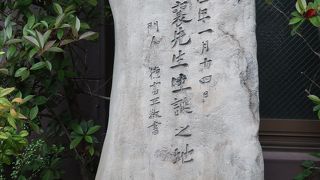 年一月十四日
襄先生生誕之地
門人 徳富正敬書